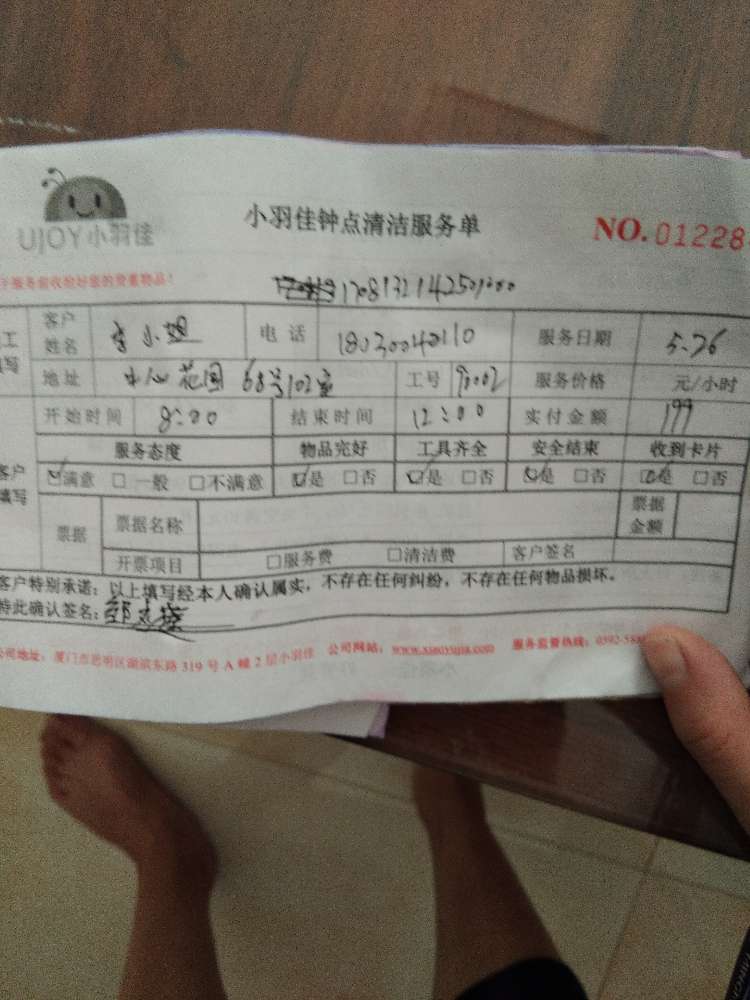 UJOY小羽佳
小羽佳钟点清洁服务单
NO. 01228
服务前收检好您的贵重物品!
客户姓名 李小姐 电话 18030040110 服务日期 5.26
地址 中心花园 68号102室 工号 90002 服务价格 元/小时
开始时间 8:00 结束时间 12:00 实付金额 199
服务态度 物品完好 工具齐全 安全结束 收到卡片
客户填写
满意 一般 不满意 是 否 是 否 是 否 是 否
票据 票据名称 票据金额
开票项目 服务费 清洁费 客户签名
客户特别承诺:以上填写经本人确认属实,不存在任何纠纷,不存在任何物品损坏。
特此确认签名:
公司地址:厦门市思明区湖滨东路 319 号 A 幢 2 层小羽佳 公司网站:www.xiaoyujia.com 服务监督热线:0592-588